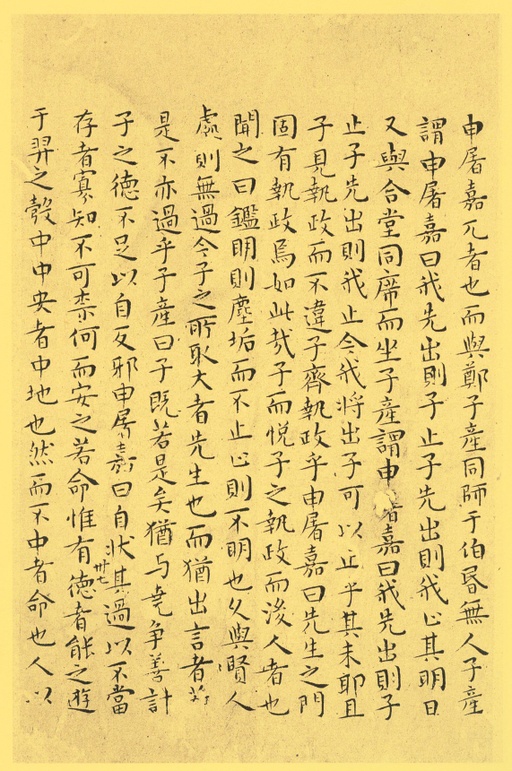 申屠嘉兀者也而與鄭子產同師于伯昬無人子產
謂申屠嘉曰我先出則子止子先出則我止其明日
又與合堂同席而坐子產謂申屠嘉曰我先出則子
止子先出則我止今我將出子可以止乎其未耶且
子見執政而不違子齊執政乎申屠嘉曰先生之門
固有執政焉如此哉子而悅子之執政而後人者也
聞之曰鑑明則塵垢而不止止則不明也久與賢人
處則無過今子之所取大者先生也而猶出言若
是不亦過乎子產曰子既若是矣猶与堯爭善計
子之德不足以自反邪申屠嘉曰自狀其過以不當
存者寡知不可柰何而安之若命惟有德者能之遊
于羿之彀中中央者中地也然而不中者命也人以
卅七